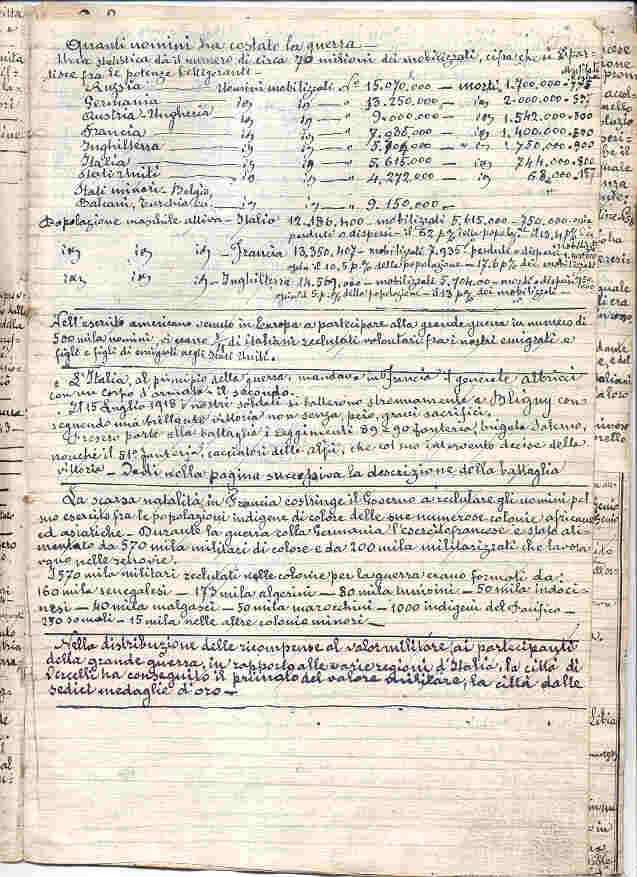 Quanti uomini ha costato la guerra —
Una statistica dà il numero di circa 70 milioni dei mobilizzati, cifra che si ripar-
tisce fra le potenze belligeranti —
Russia — Uomini mobilizzati N° 15.070.000 — morti 1.700.000
Germania — id — " 13.250.000 — id — 2.000.000
Austria-Ungheria — id — " 9.000.000 — id 1.542.000
Francia — id — " 7.935.000 — id — 1.400.000
Inghilterra — id — " 5.704.000 — " id 1.750.000
Italia — id — id — " 5.615.000 — id 744.000
Stati Uniti — id — id — " 4.272.000 — id 68.000
Stati minori - Belgio,
Balcani, Turchia ecc. — id — id — " 9.150.000 —
Popolazione maschile attiva — Italia 12.186.400 — mobilizzati 5.615.000 — 750.000
perduti o dispersi — il 6,2 p% della popolaz. il 13,4 p%
id id id — Francia 13.350.407 — mobilizzati 7.935 — perduti o dispersi
il 10,5 p.% della popolazione — 17,6 p% dei mobilizzati
id id id — Inghilterra 14.569.000 — mobilizzati 5.704.000 — morti o dispersi
il 5 p.% della popolazione — il 13 p% dei mobilizzati —
Nell'esercito americano venuto in Europa a partecipare alla grande guerra in numero di
500 mila uomini, vi erano di italiani reclutati volontari fra i nostri emigrati e
figli e figli di emigrati negli Stati Uniti.
L'Italia, al principio della guerra, mandava in Francia il generale Albricci
con un corpo d'armata — il secondo.
Il 15 Luglio 1918 i nostri soldati si batterono strenuamente a Bligny con
seguendo una brillante vittoria non senza, però, gravi sacrifici.
Presero parte alla battaglia i reggimenti 89 e 90 fanteria, brigata Salerno,
nonché il 51° fanteria, cacciatori delle alpi, che col suo intervento decise della
vittoria — Vedi nella pagina successiva la descrizione della battaglia
La scarsa natalità in Francia costringe il Governo a reclutare gli uomini pel
suo esercito fra le popolazioni indigene di colore delle sue numerose colonie africane
ed asiatiche — Durante la guerra colla Germania l'esercito francese è stato ali-
mentato da 570 mila militari di colore e da 200 mila militarizzati che lavora
vano nelle retrovie.
I 570 mila militari reclutati nelle colonie per la guerra erano formati da:
160 mila senegalesi — 173 mila algerini — 80 mila tunisini — 50 mila indoci-
nesi — 40 mila malgasci — 50 mila marocchini — 1000 indigeni del Pacifico —
250 somali — 15 mila nelle altre colonie minori —
Nella distribuzione delle ricompense al valor militare, ai partecipanti
della grande guerra, in rapporto alle varie regioni d'Italia, la città di
Vercelli ha conseguito il primato del valore militare, la città dalle
sedici medaglie d'oro —